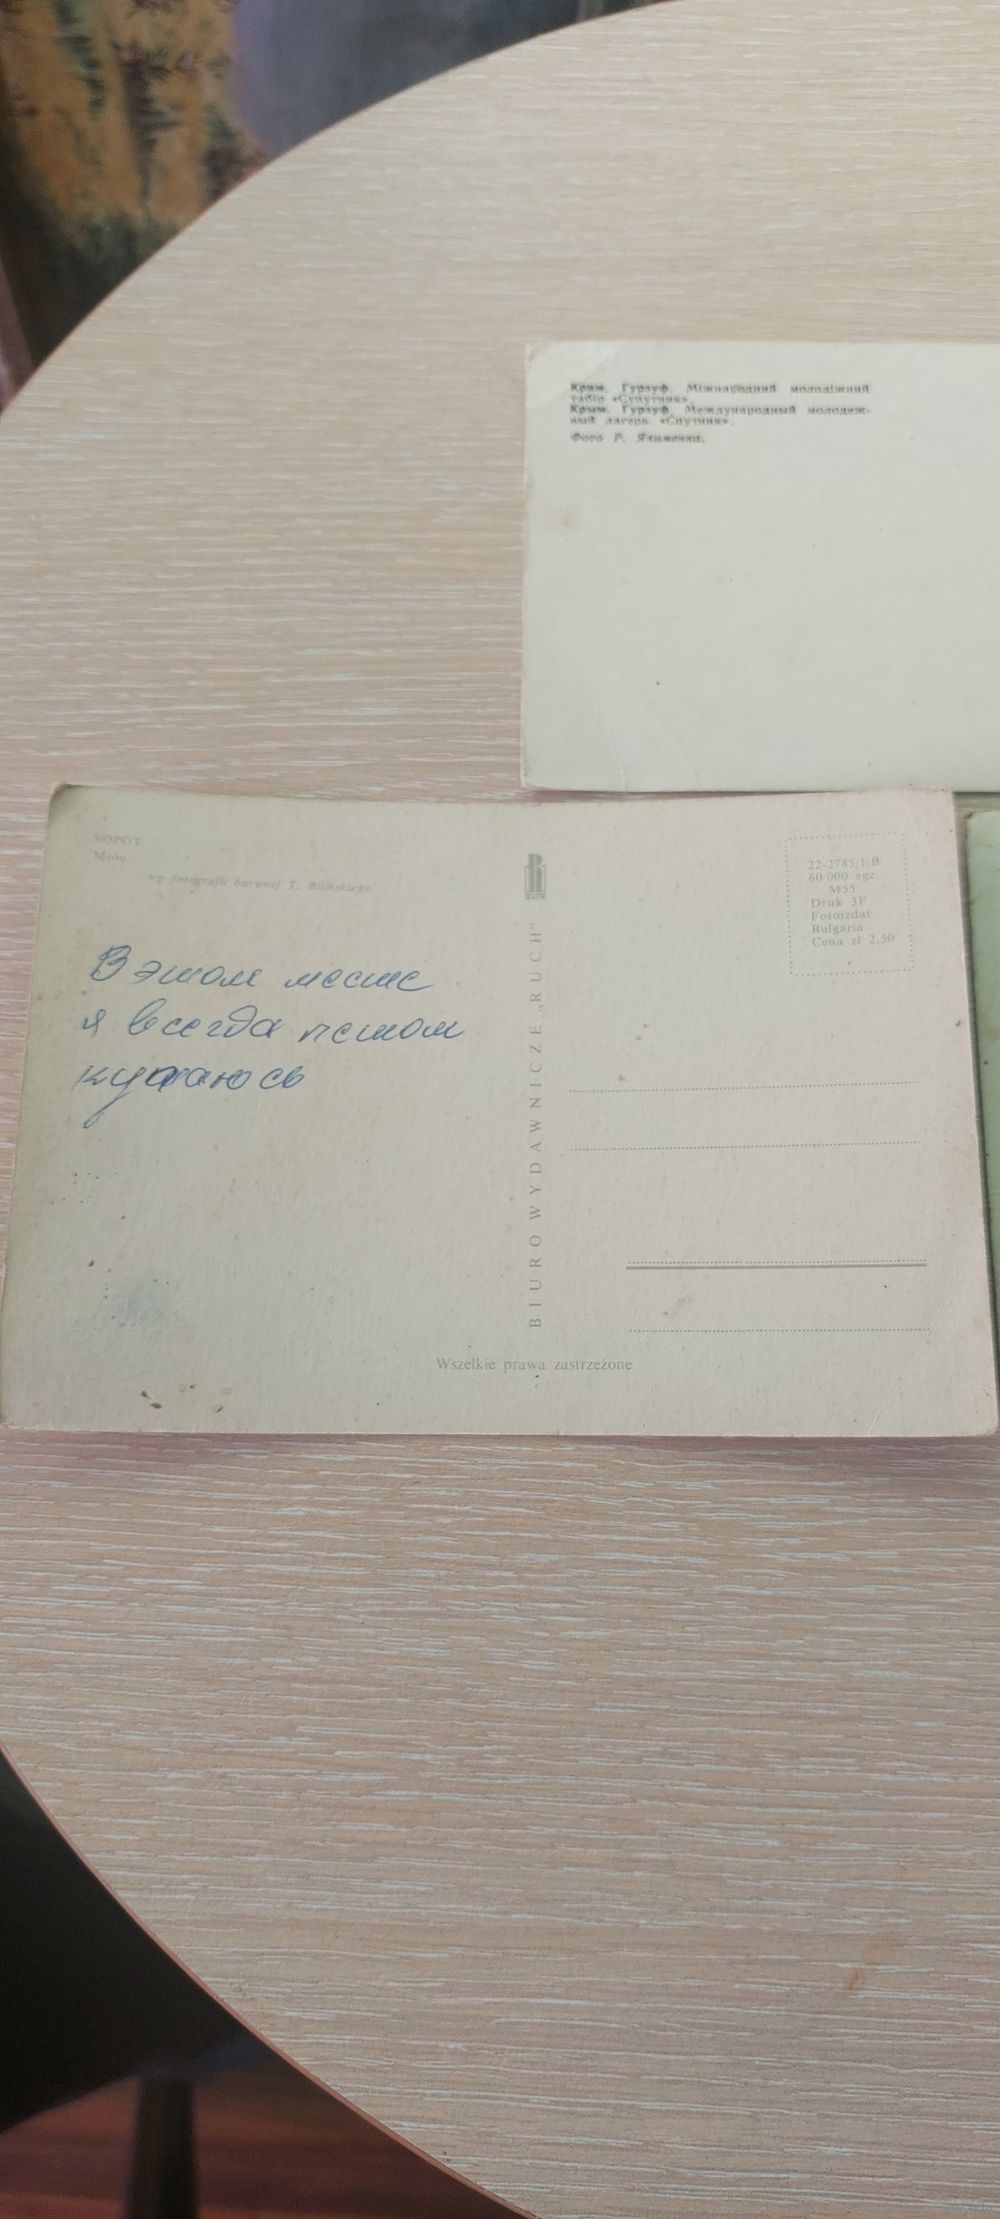 Крим. Гурзуф. Міжнародний молодіжний
табір «Супутник».
Крым. Гурзуф. Международный молодеж-
ный лагерь «Спутник».
Фото Р. Якименка.
SOPOT
Molo
wg fotografii barwnej T. Bilińskiego
В этом месте
я всегда летом
купаюсь
BIURO WYDAWNICZE „RUCH"
22-2785/I/B
60 000 egz.
M55
Druk 3F
Fotoizdat
Bulgaria
Cena zł 2,50
Wszelkie prawa zastrzeżone